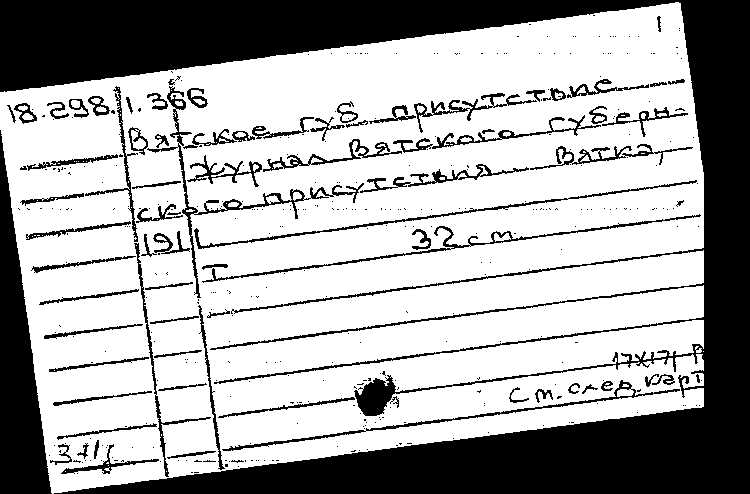 1
18.298.1.366
Вятское губ присутствие
Журнал Вятского губерн-
ского присутствия Вятка,
1911
32 cm.
I
См. след. карт